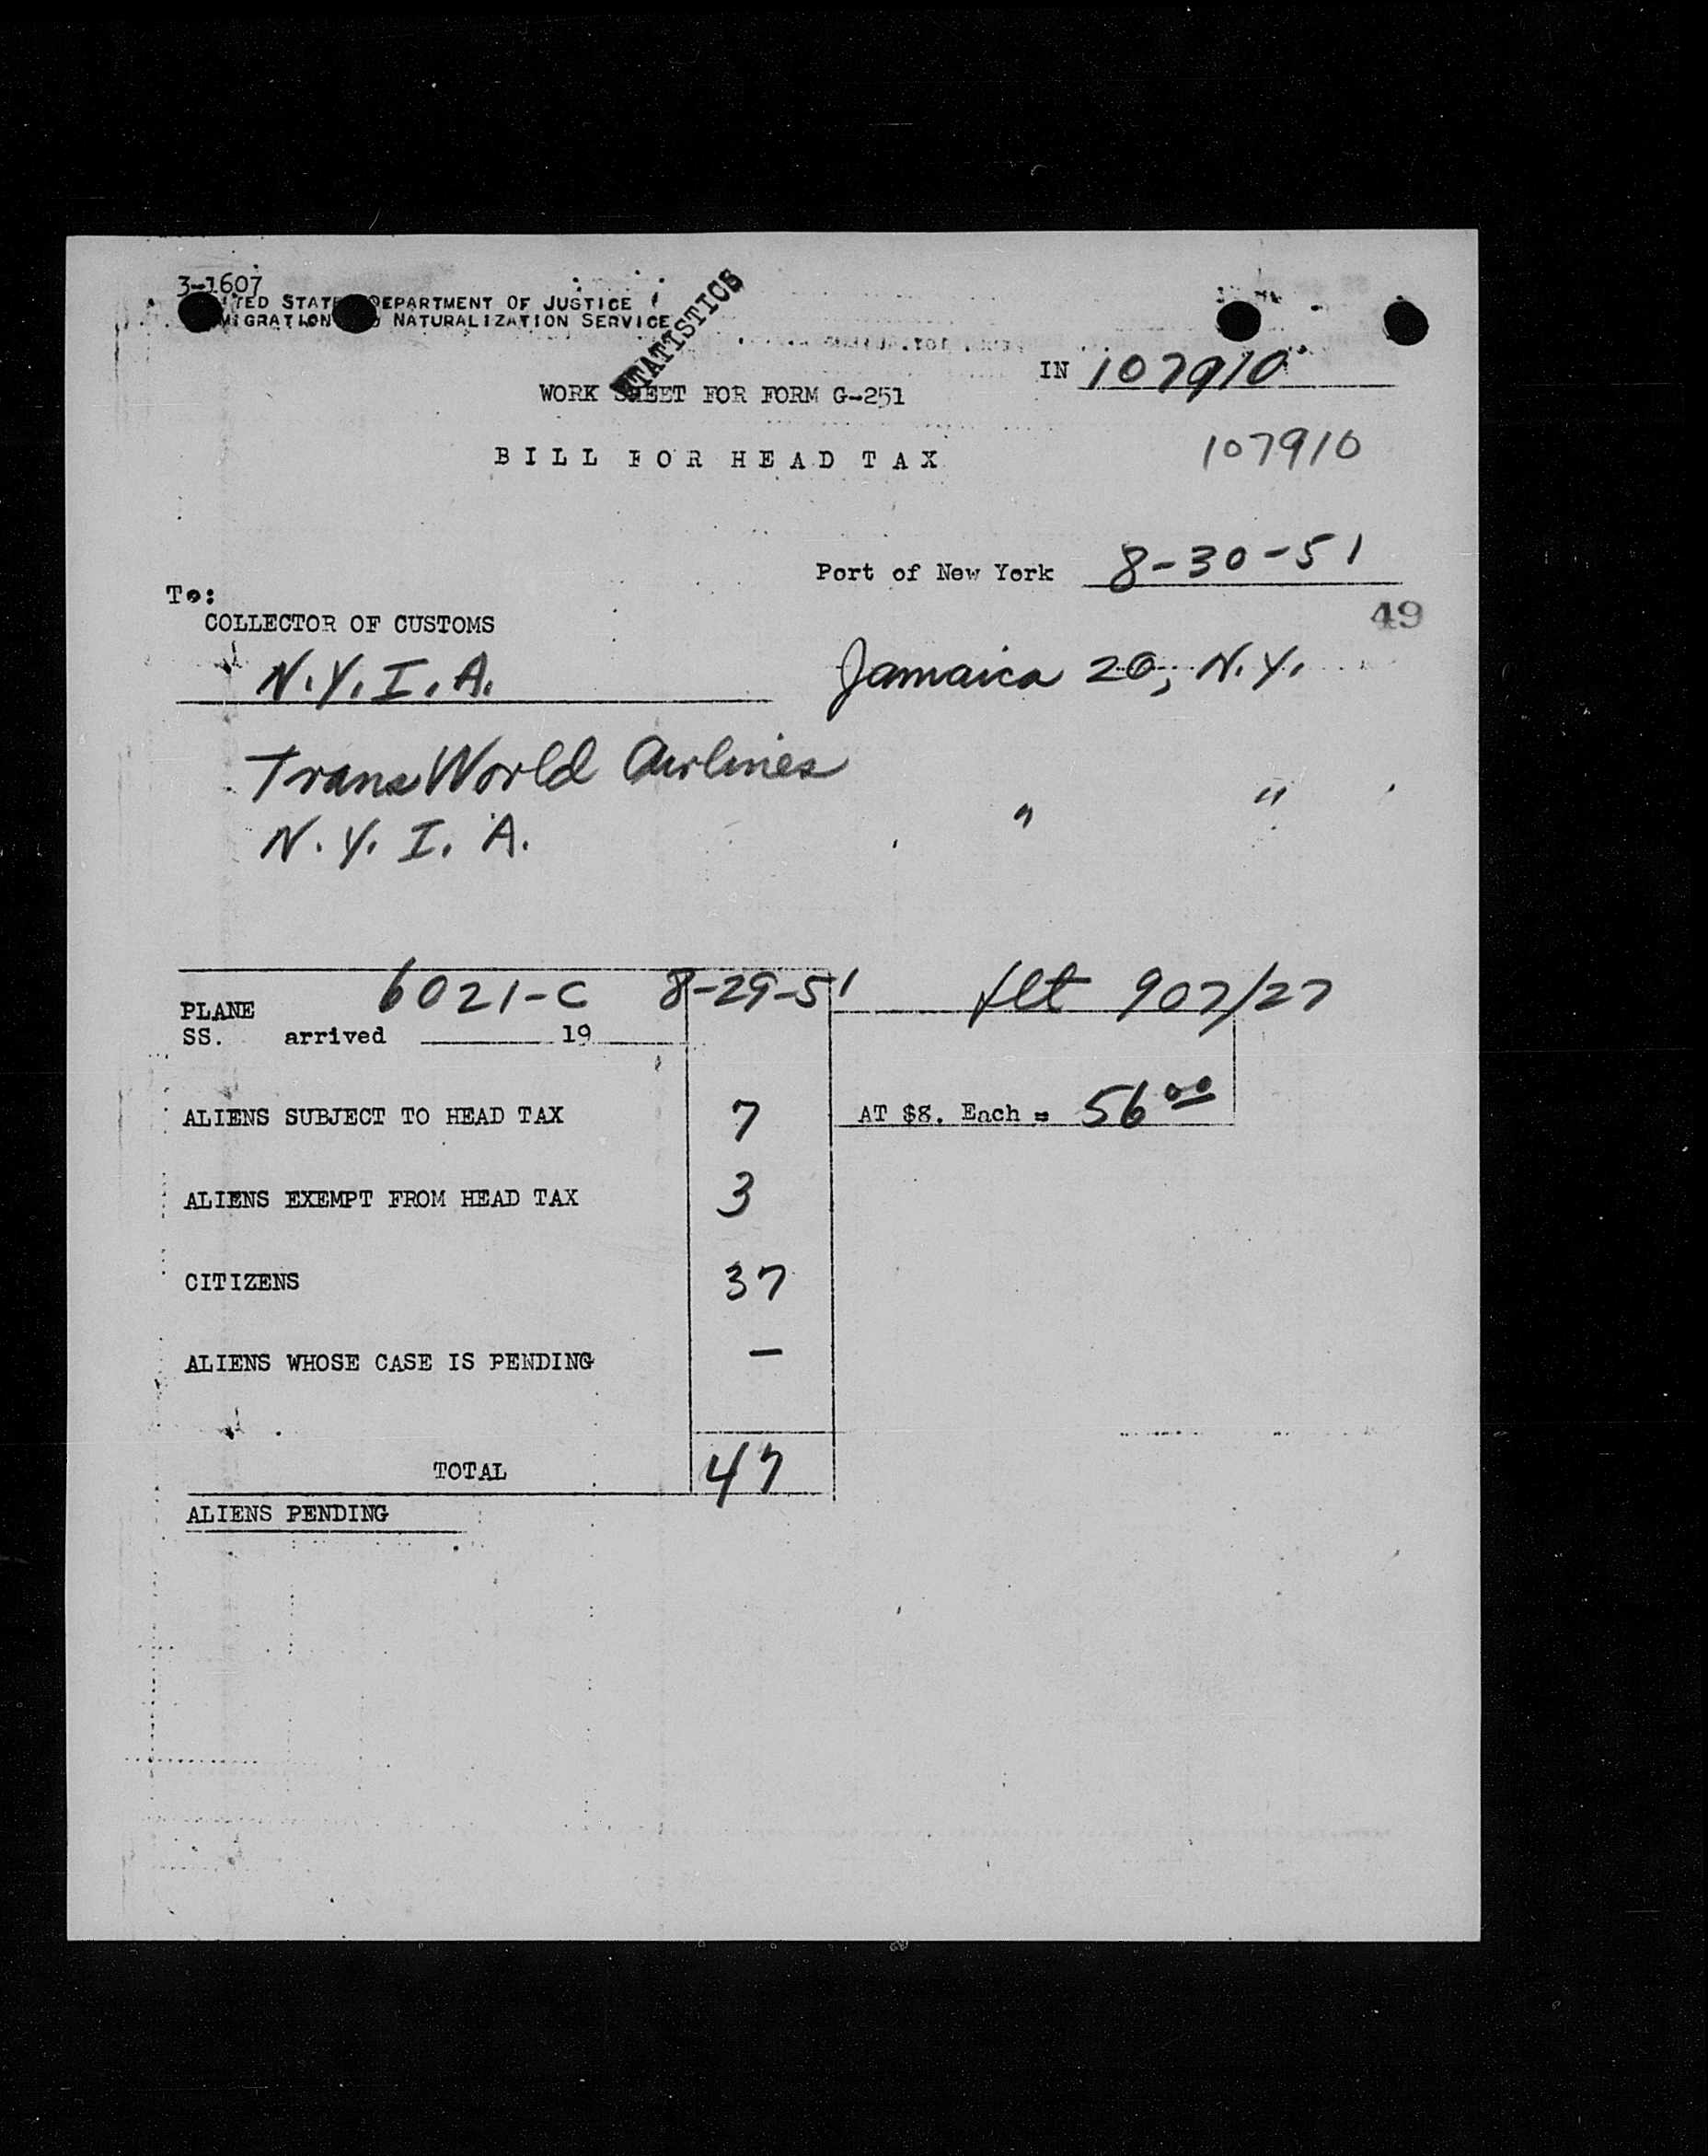 3-1607
UNITED STATES DEPARTMENT OF JUSTICE
IMMIGRATION AND NATURALIZATION SERVICE
STATISTICS
IN 107910
WORK SHEET FOR FORM G-251
107910
BILL FOR HEAD TAX
Port of New York 8-30-51
To:
49
COLLECTOR OF CUSTOMS
N.Y.I.A. Jamaica 20, N.Y.
Trans World Airlines
N.Y.I.A. " "
6021-C 8-29-51 flt 907/27
PLANE
SS. arrived 19
ALIENS SUBJECT TO HEAD TAX 7 AT $8. Each = 56 00
ALIENS EXEMPT FROM HEAD TAX 3
CITIZENS 37
ALIENS WHOSE CASE IS PENDING —
TOTAL 47
ALIENS PENDING